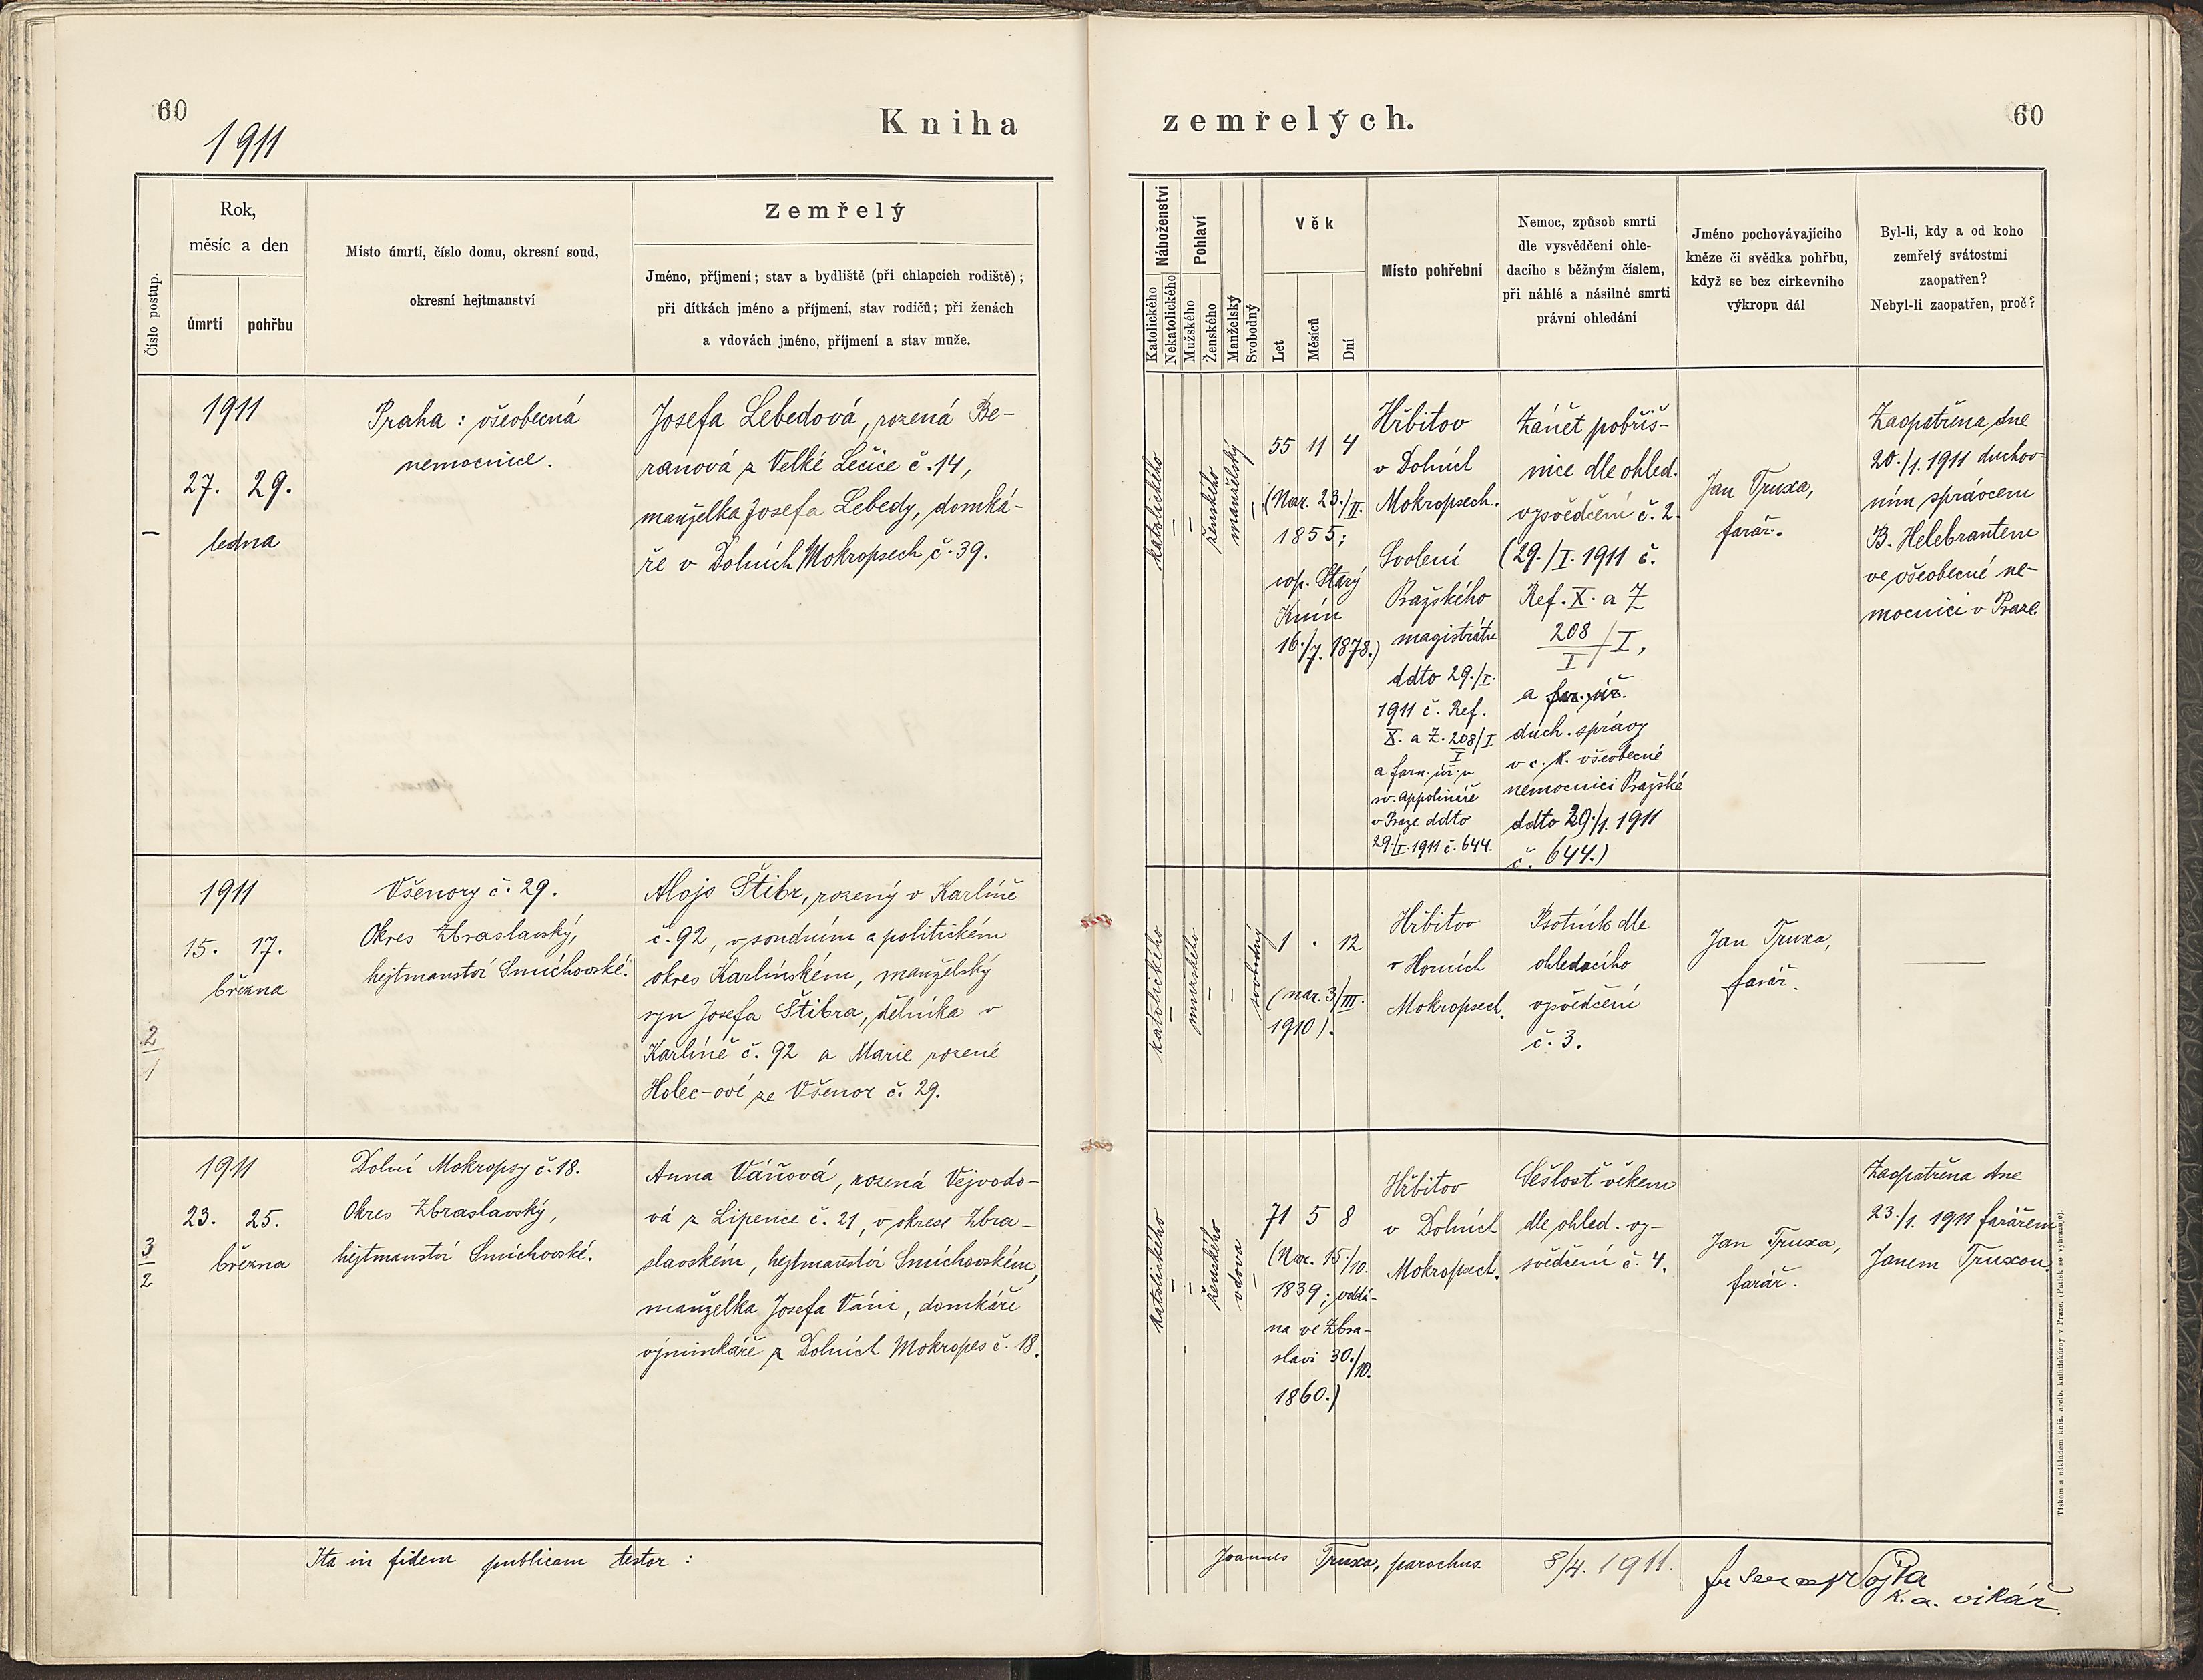 60
1911
Kniha
zemřelých.
60
Číslo postup.
Rok,
měsíc a den
úmrtí
pohřbu
Místo úmrtí, číslo domu, okresní soud,
okresní hejtmanství
Zemřelý
Jméno, příjmení; stav a bydliště (při chlapcích rodiště);
při dítkách jméno a příjmení, stav rodičů; při ženách
a vdovách jméno, příjmení a stav muže.
Náboženství
Katolického
Nekatolického
Pohlaví
Mužského
Ženského
Manželský
Svobodný
Věk
Let
Měsíců
Dní
Místo pohřební
Nemoc, způsob smrti
dle vysvědčení ohle-
dacího s běžným číslem,
při náhlé a násilné smrti
právní ohledání
Jméno pochovávajícího
kněze či svědka pohřbu,
když se bez církevního
výkropu dál
Byl-li, kdy a od koho
zemřelý svátostmi
zaopatřen?
Nebyl-li zaopatřen, proč?
–
1911
27. 29.
ledna
Praha: všeobecná
nemocnice.
Josefa Lebedová, rozená Be-
ranová z Velké Lečice č. 14,
manželka Josefa Lebedy, domká-
ře v Dolních Mokropsech č. 39.
katolického
–
–
ženského
manželský
–
55 11 4
(Nar. 23./II.
1855;
cop. Starý
Knín
16./7. 1878.)
Hřbitov
v Dolních
Mokropsech.
Svolení
Pražského
magistrátu
ddto 29./I.
1911 č. Ref.
X. a Z. 208/I
I
a farn. úř. u
sv. Appolináře
v Praze ddto
29./I. 1911 č. 644.
Zánět pobřiš-
nice dle ohled.
vysvědčení č. 2.
(29./I. 1911 č.
Ref. X. a Z
208/I,
I
a far. úř.
duch. správy
v c. k. všeobecné
nemocnici Pražské
ddto 29./1. 1911
č. 644.)
Jan Truxa,
farář.
Zaopatřena dne
20./1. 1911 duchov-
ním správcem
B. Helebrantem
ve všeobecné ne-
mocnici v Praze.
2
1
1911
15. 17.
března
Všenory č. 29.
Okres Zbraslavský,
hejtmanství Smíchovské.
Alojs Štibr, rozený v Karlíně
č. 92, v soudním a politickém
okres Karlínském, manželský
syn Josefa Štibra, dělníka v
Karlíně č. 92 a Marie rozené
Holec-ové ze Všenor č. 29.
katolického
–
mužského
–
–
svobodný
1 . 12
(nar. 3/III.
1910).
Hřbitov
v Horních
Mokropsech.
Psotník dle
ohledacího
vysvědčení
č. 3.
Jan Truxa,
farář.
3
2
1911
23. 25.
března
Dolní Mokropsy č. 18.
Okres Zbraslavský,
hejtmanství Smíchovské.
Anna Váňová, rozená Vejvodo-
vá z Lipence č. 21, v okrese Zbra-
slavském, hejtmanství Smíchovském,
manželka Josefa Váni, domkáře
výminkáře z Dolních Mokropes č. 18.
katolického
–
–
ženského
vdova
–
71 5 8
(Nar. 15/10.
1839; oddá-
na ve Zbra-
slavi 30./10.
1860.)
Hřbitov
v Dolních
Mokropsech.
Sešlosť věkem
dle ohled. vy-
svědčení č. 4.
Jan Truxa,
farář.
Zaopatřena dne
23./1. 1911 farářem
Janem Truxou.
Ita in fidem publicam testor:
Joannes Truxa, parochus.
8/4. 1911.
Vojta
k. a. vikář.
Tiskem a nákladem kníž. arcib. knihtiskárny v Praze. (Patisk se vyhrazuje).